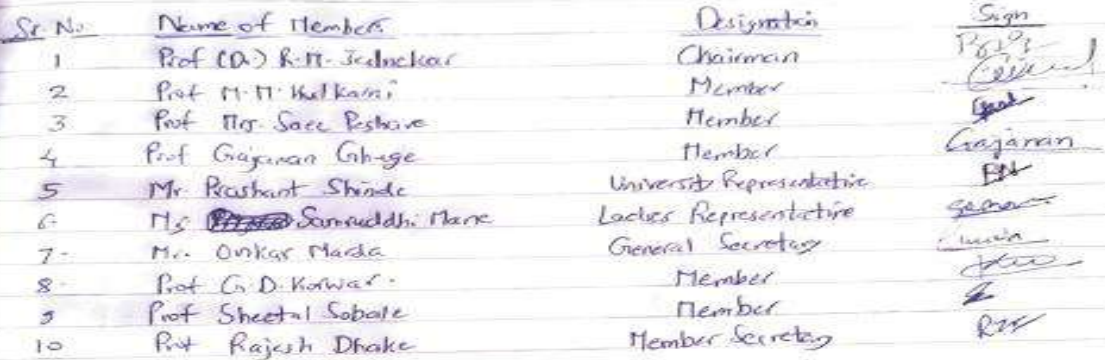 Sr. No. Name of Members Designation Sign
1 Prof (Dr.) R.M. Jalnekar Chairman
2 Prof M.M. Kulkarni Member
3 Prof Mrs. Saee Peshave Member
4 Prof Gajanan Ghuge Member Gajanan
5 Mr. Prashant Shinde University Representative
6 Ms Samruddhi Mane Ladies Representative
7. Mr. Onkar Marda General Secretary
8. Prof G.D. Korwar. Member
9 Prof Sheetal Sobale Member
10 Prof Rajesh Dhake Member Secretary